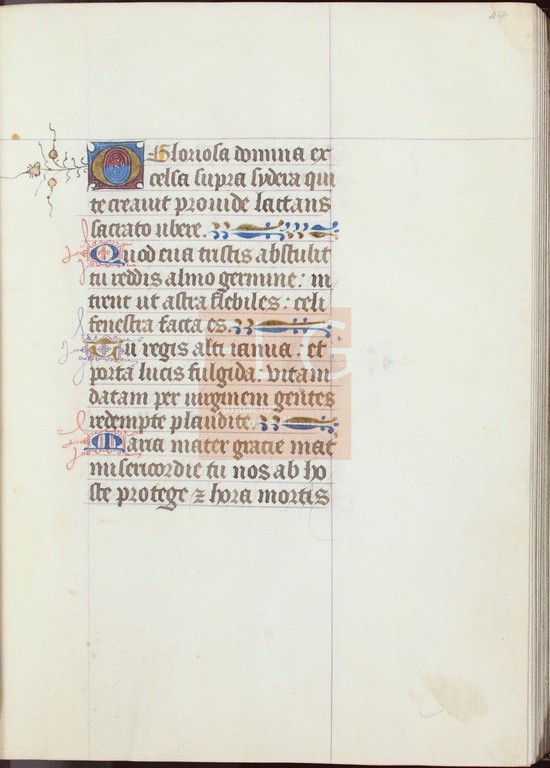 44
O Gloriosa domina ex
celsa supra sydera qui
te creauit prouide lactans
sacrato ubere.
Quod eua tristis abstulit
tu reddis almo germine: in
trent ut astra flebiles: celi
fenestra facta es.
Tu regis alti ianua: et
porta lucis fulgida. vitam
datam per uirginem gentes
redempte plaudite.
Maria mater gracie mat
misericordie tu nos ab ho
ste protege ⁊ hora mortis